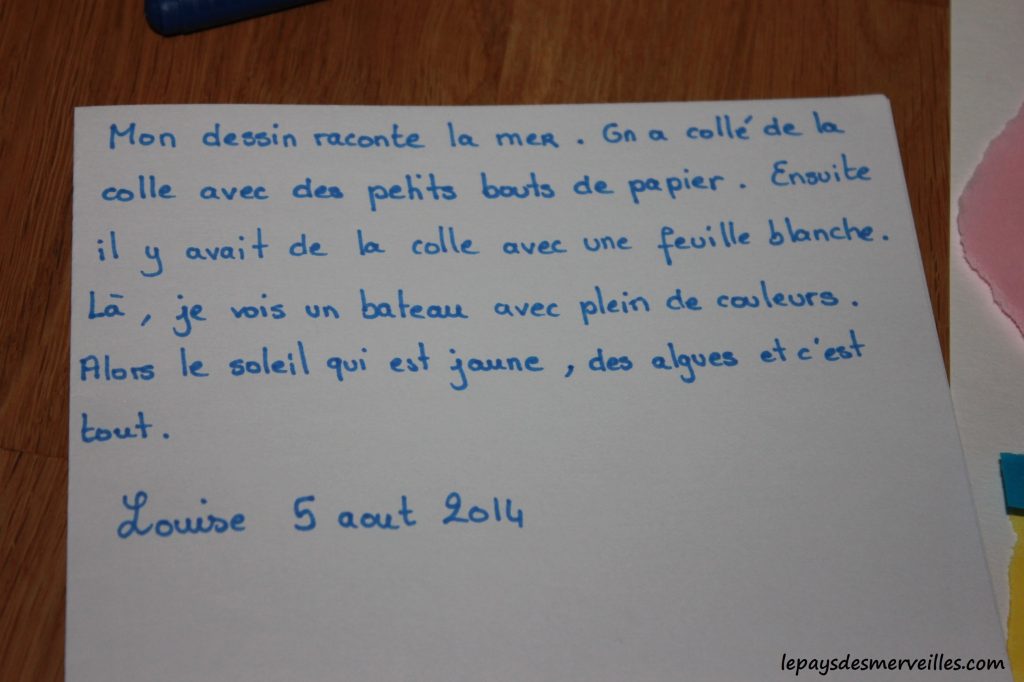 Mon dessin raconte la mer. On a collé de la
colle avec des petits bouts de papier. Ensuite
il y avait de la colle avec une feuille blanche.
Là, je vois un bateau avec plein de couleurs.
Alors le soleil qui est jaune, des algues et c'est
tout.
Louise 5 aout 2014
lepaysdesmerveilles.com